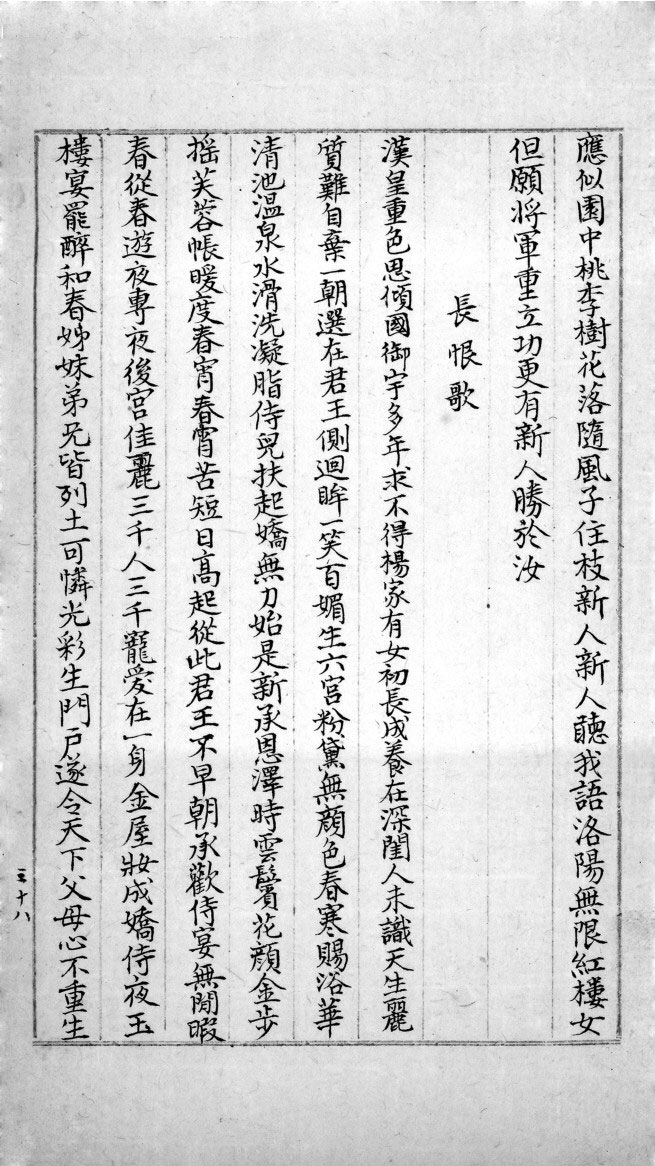 應似園中桃李樹花落隨風子住枝新人新人聽我語洛陽無限紅樓女
但願將軍重立功更有新人勝於汝
長恨歌
漢皇重色思傾國御宇多年求不得楊家有女初長成養在深閨人未識天生麗
質難自棄一朝選在君王側迴眸一笑百媚生六宮粉黛無顏色春寒賜浴華
清池溫泉水滑洗凝脂侍兒扶起嬌無力始是新承恩澤時雲鬢花顏金步
搖芙蓉帳暖度春宵春宵苦短日高起從此君王不早朝承歡侍宴無閒暇
春從春遊夜專夜後宮佳麗三千人三千寵愛在一身金屋妝成嬌侍夜玉
樓宴罷醉和春姊妹弟兄皆列土可憐光彩生門戶遂令天下父母心不重生
三十八